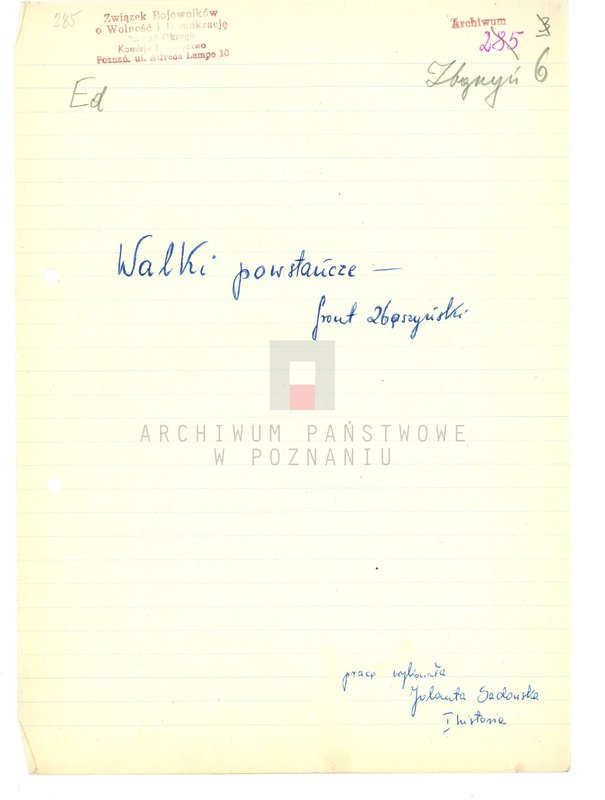 285
Związek Bojowników
o Wolność i Demokrację
Zarząd Okręgu
Komisja
Poznań, ul. Alfreda Lampe 10
Archiwum
285
Zbąszyń 6
Ed
Walki powstańcze —
front Zbąszyński
ARCHIWUM PAŃSTWOWE
W POZNANIU
pracę wykonała
Jolanta Sadowska
I historia